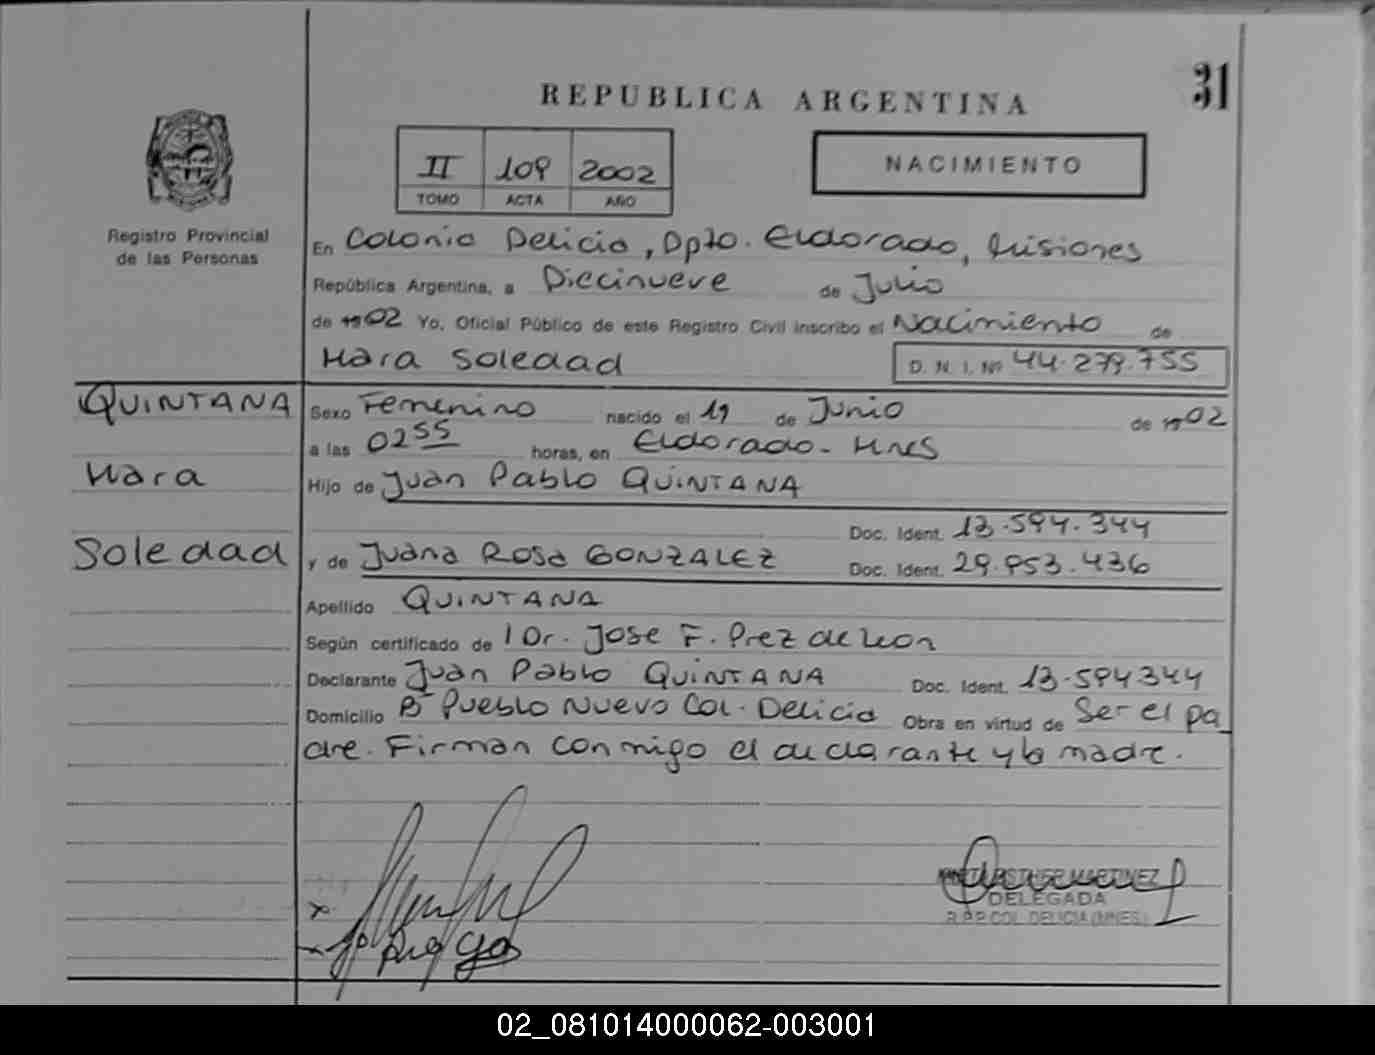 31
REPUBLICA ARGENTINA
II 109 2002
TOMO ACTA AÑO
NACIMIENTO
Registro Provincial
de las Personas
En Colonia Delicia, Dpto. Eldorado, Misiones
República Argentina, a Diecinueve de Julio
de 1902 Yo, Oficial Público de este Registro Civil inscribo el Nacimiento de
Mara Soledad D. N. I. Nº 44.279.755
QUINTANA
Mara
Soledad
Sexo Femenino nacido el 19 de Junio de 1902
a las 0255 horas, en Eldorado - Mnes
Hijo de Juan Pablo QUINTANA
Doc. Ident. 13.594.344
y de Juana Rosa GONZALEZ Doc. Ident. 29.953.436
Apellido QUINTANA
Según certificado de l Dr. Jose F. Prez de Leon
Declarante Juan Pablo QUINTANA Doc. Ident. 13.594344
Domicilio Bº Pueblo Nuevo Col. Delicia Obra en virtud de Ser el pa_
dre. Firman conmigo el declarante y la madre.
ESTHER MARTINEZ
DELEGADA
R.P.P. COL. DELICIA (MNES.)
02_081014000062-003001